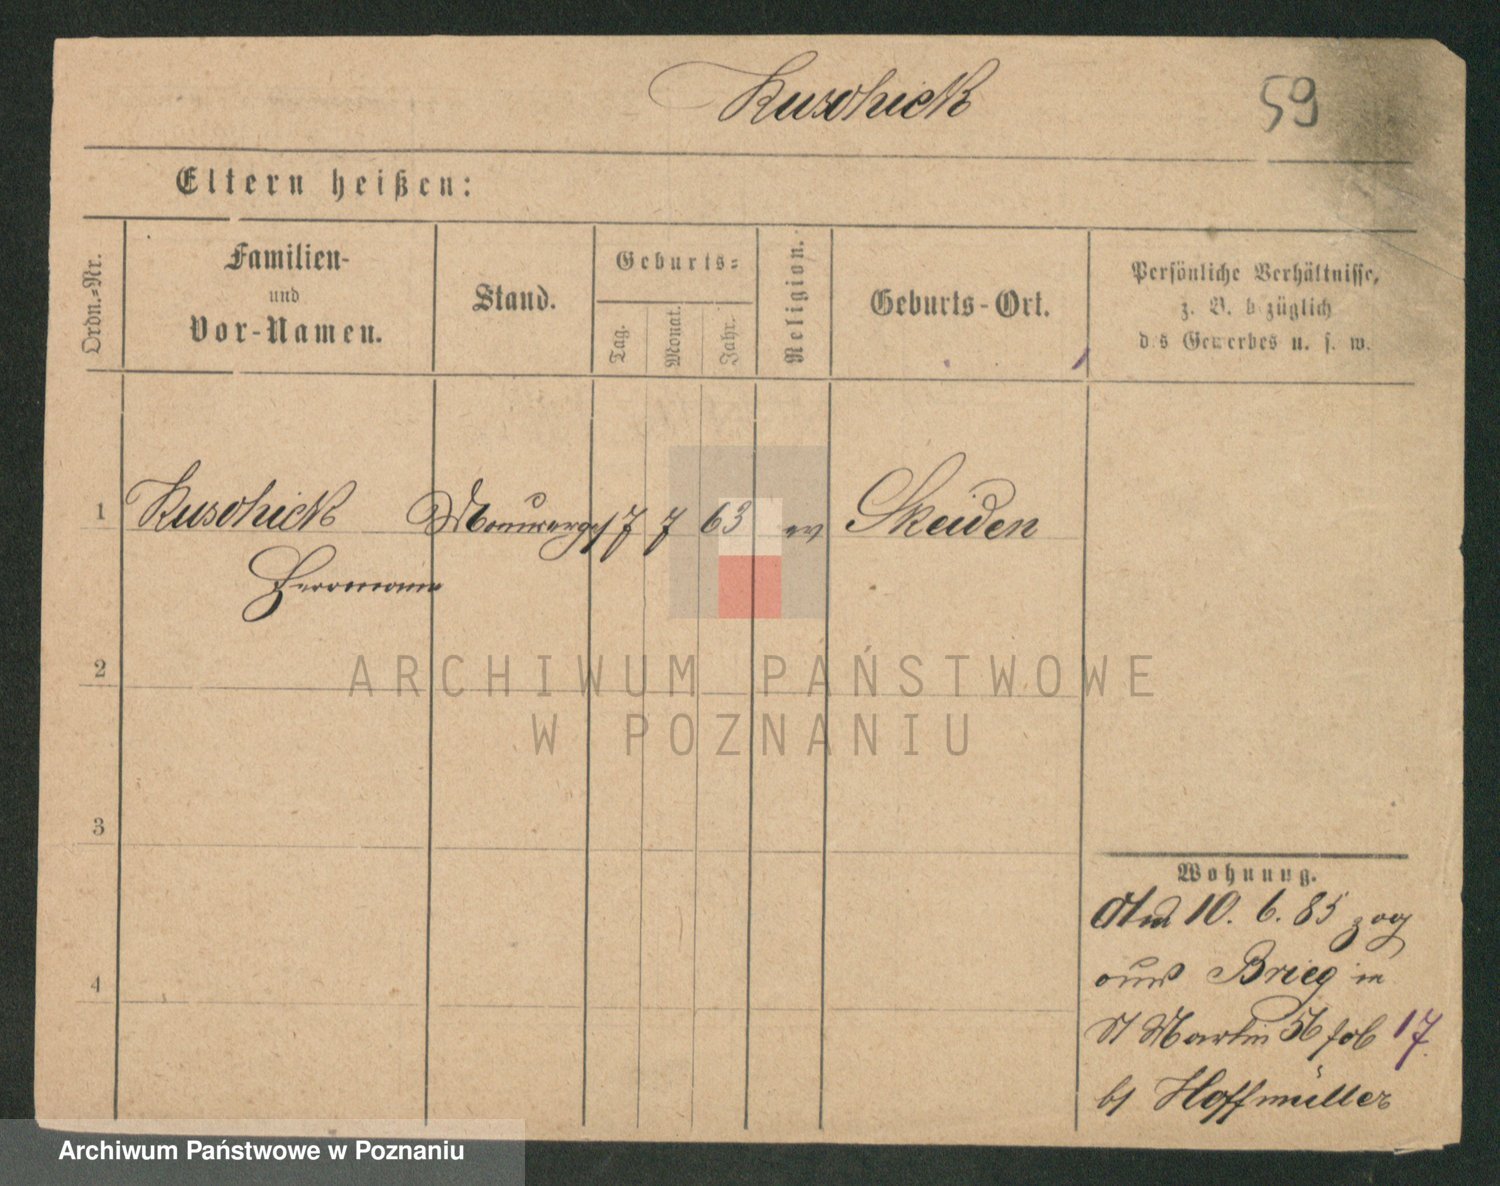 Kuschick
59
Eltern heißen:
Ordn.-Nr.
Familien-
und
Vor-Namen.
Stand.
Geburts-
Tag.
Monat.
Jahr.
Religion.
Geburts-Ort.
Persönliche Verhältnisse,
z. B. bezüglich
des Gewerbes u. s. w.
1 Kuschick Maurerges 7 7 63 ev Skeiden
Herrmann
2
3
4
Wohnung.
Am 10. 6. 85 zog
aus Brieg in
St Martin 56 17.
bei Hoffmüller
ARCHIWUM PAŃSTWOWE
W POZNANIU
Archiwum Państwowe w Poznaniu